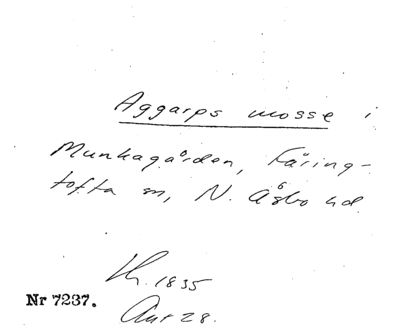 Aggarps mosse i
Munkagården, Färing-
tofta sn, N. Åsbo hd.
1835
Nr 7237.
28.